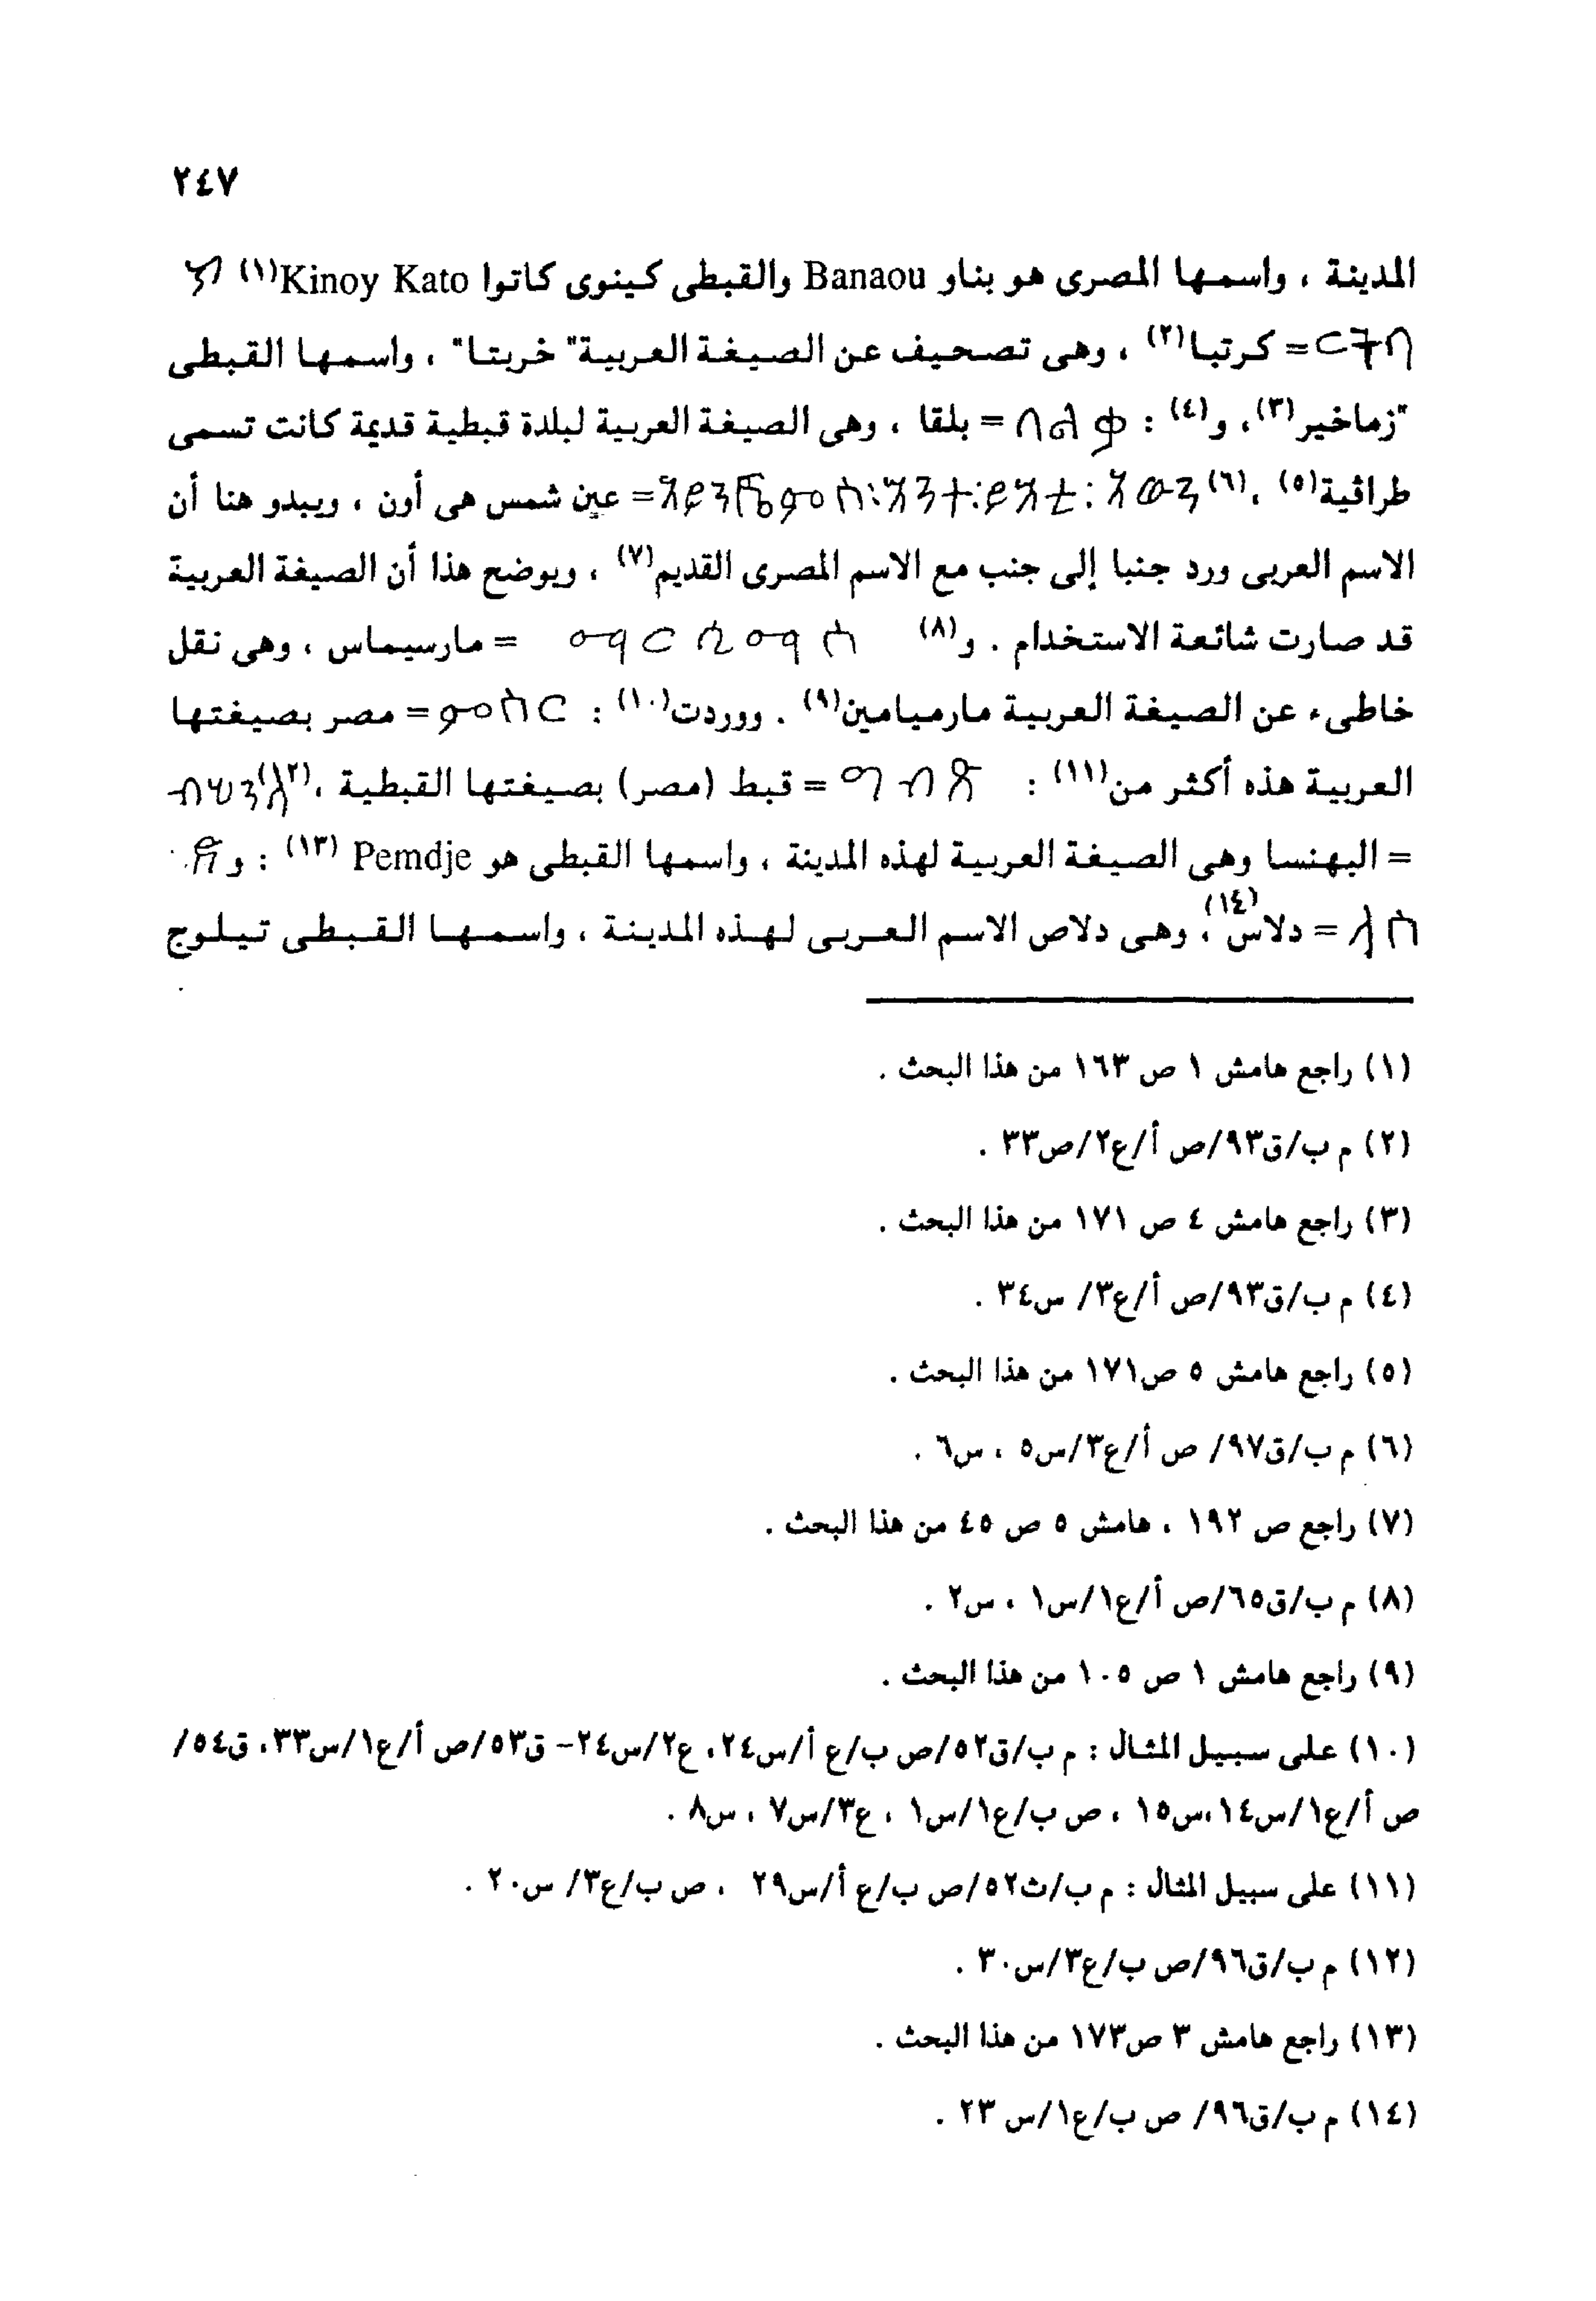 ٢٤٧
المدينة ، واسمها المصرى هو بناو Banaou والقبطى كينوى كاتوا Kinoy Kato(١)
= كرتبا(٢) ، وهى تصحيف عن الصيغة العربية" خربتا" ، واسمها القبطى
"زماخير(٣)، و(٤) : = بلقا ، وهى الصيغة العربية لبلدة قبطية قديمة كانت تسمى
طراثية(٥) ،(٦) = عين شمس هى أون ، ويبدو هنا أن
الاسم العربى ورد جنبا إلى جنب مع الاسم المصرى القديم(٧) ، ويوضح هذا أن الصيغة العربية
قد صارت شائعة الاستخدام . و(٨) = مارسيماس ، وهى نقل
خاطىء عن الصيغة العربية مارميامين(٩) . ووردت(١٠) : = مصر بصيغتها
العربية هذه أكثر من(١١) : = قبط (مصر) بصيغتها القبطية ،(١٢)
= البهنسا وهى الصيغة العربية لهذه المدينة ، واسمها القبطى هو Pemdje (١٣) : و
= دلاس(١٤)، وهى دلاص الاسم العربى لهذه المدينة ، واسمها القبطى تيلوج
(١) راجع هامش ١ ص ١٦٣ من هذا البحث .
(٢) م ب/ق٩٣/ص أ/ع٢/ص٣٣ .
(٣) راجع هامش ٤ ص ١٧١ من هذا البحث .
(٤) م ب/ق٩٣/ص أ/ع٣/ س٣٤ .
(٥) راجع هامش ٥ ص١٧١ من هذا البحث .
(٦) م ب/ق٩٧/ ص أ/ع٣/س٥ ، س٦ .
(٧) راجع ص ١٩٢ ، هامش ٥ ص ٤٥ من هذا البحث .
(٨) م ب/ق٦٥/ص أ/ع١/س١ ، س٢ .
(٩) راجع هامش ١ ص ١٠٥ من هذا البحث .
(١٠) على سبيل المثال : م ب/ق٥٢/ص ب/ع أ/س٢٤، ع٢/س٢٤- ق٥٣/ص أ/ع١/س٣٣، ق٥٤/
ص أ/ع١/س١٤،س١٥ ، ص ب/ع١/س١ ، ع٣/س٧ ، س٨ .
(١١) على سبيل المثال : م ب/ث٥٢/ص ب/ع أ/س٢٩ ، ص ب/ع٣/ س٢٠ .
(١٢) م ب/ق٩٦/ص ب/ع٣/س٣٠ .
(١٣) راجع هامش ٣ ص١٧٣ من هذا البحث .
(١٤) م ب/ق٩٦/ ص ب/ع١/س ٢٣ .